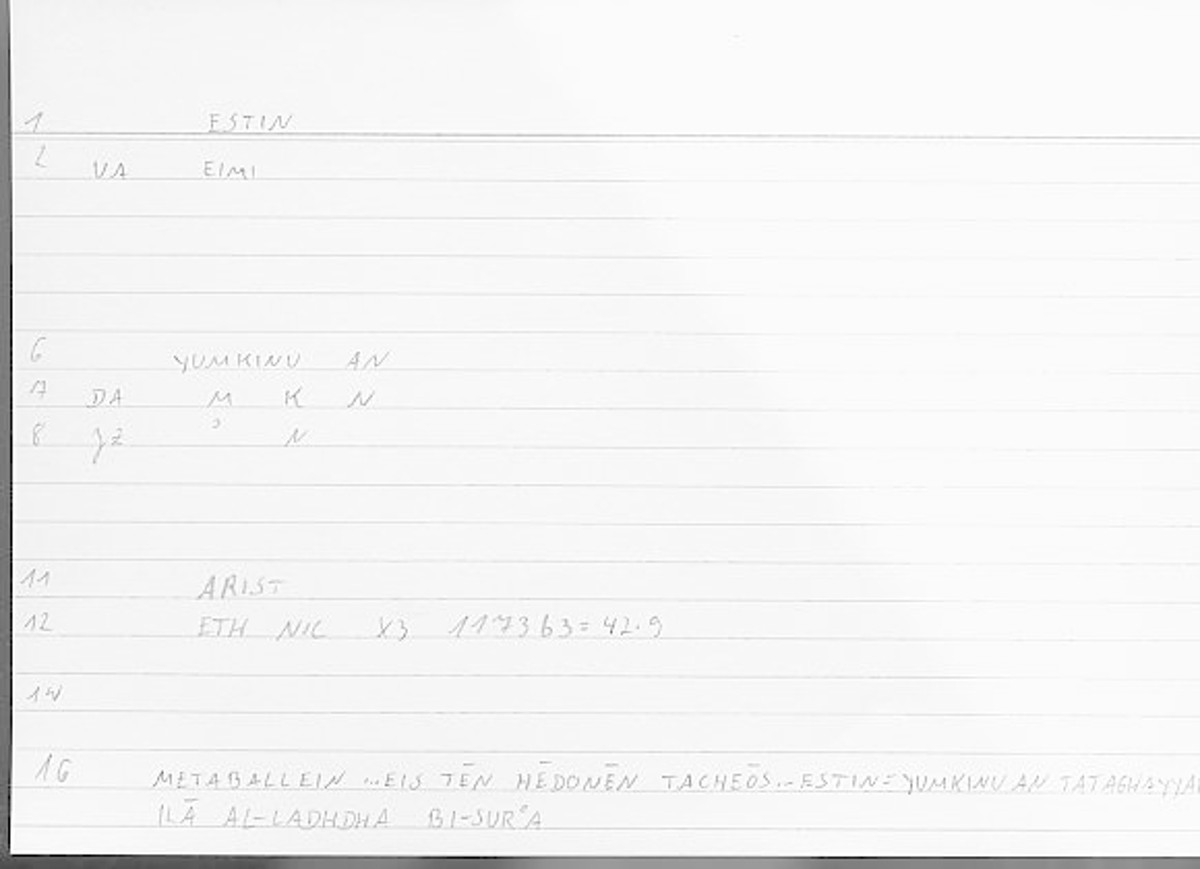 1 ESTIN
2 VA EIMI
6 YUMKINU AN
7 DA M K N
8 JZ ʾ N
11 ARIST
12 ETH NIC X3 1173b3=42.9
14 W
16 METABALLEIN ...EIS TĒN HĒDONĒN TACHEŌS...ESTIN=YUMKINU AN
ILĀ AL-LADHDHA BI-SURʿA